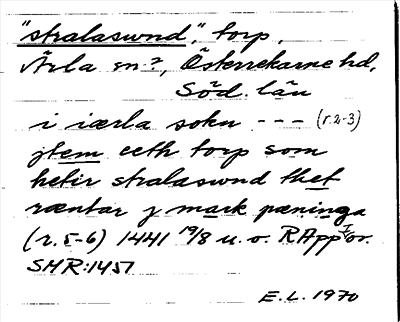 "stralaswnd", torp,
Ärla sn?, Österrekarne hd,
Söd. län
i iærla sokn --- (r.2-3)
jtem eeth torp som
hetir stralaswnd thet
ræntar j mark pæninga
(r.5-6) 1441 19/8 u.o. RApp or.
SMR:1451
E.L. 1970